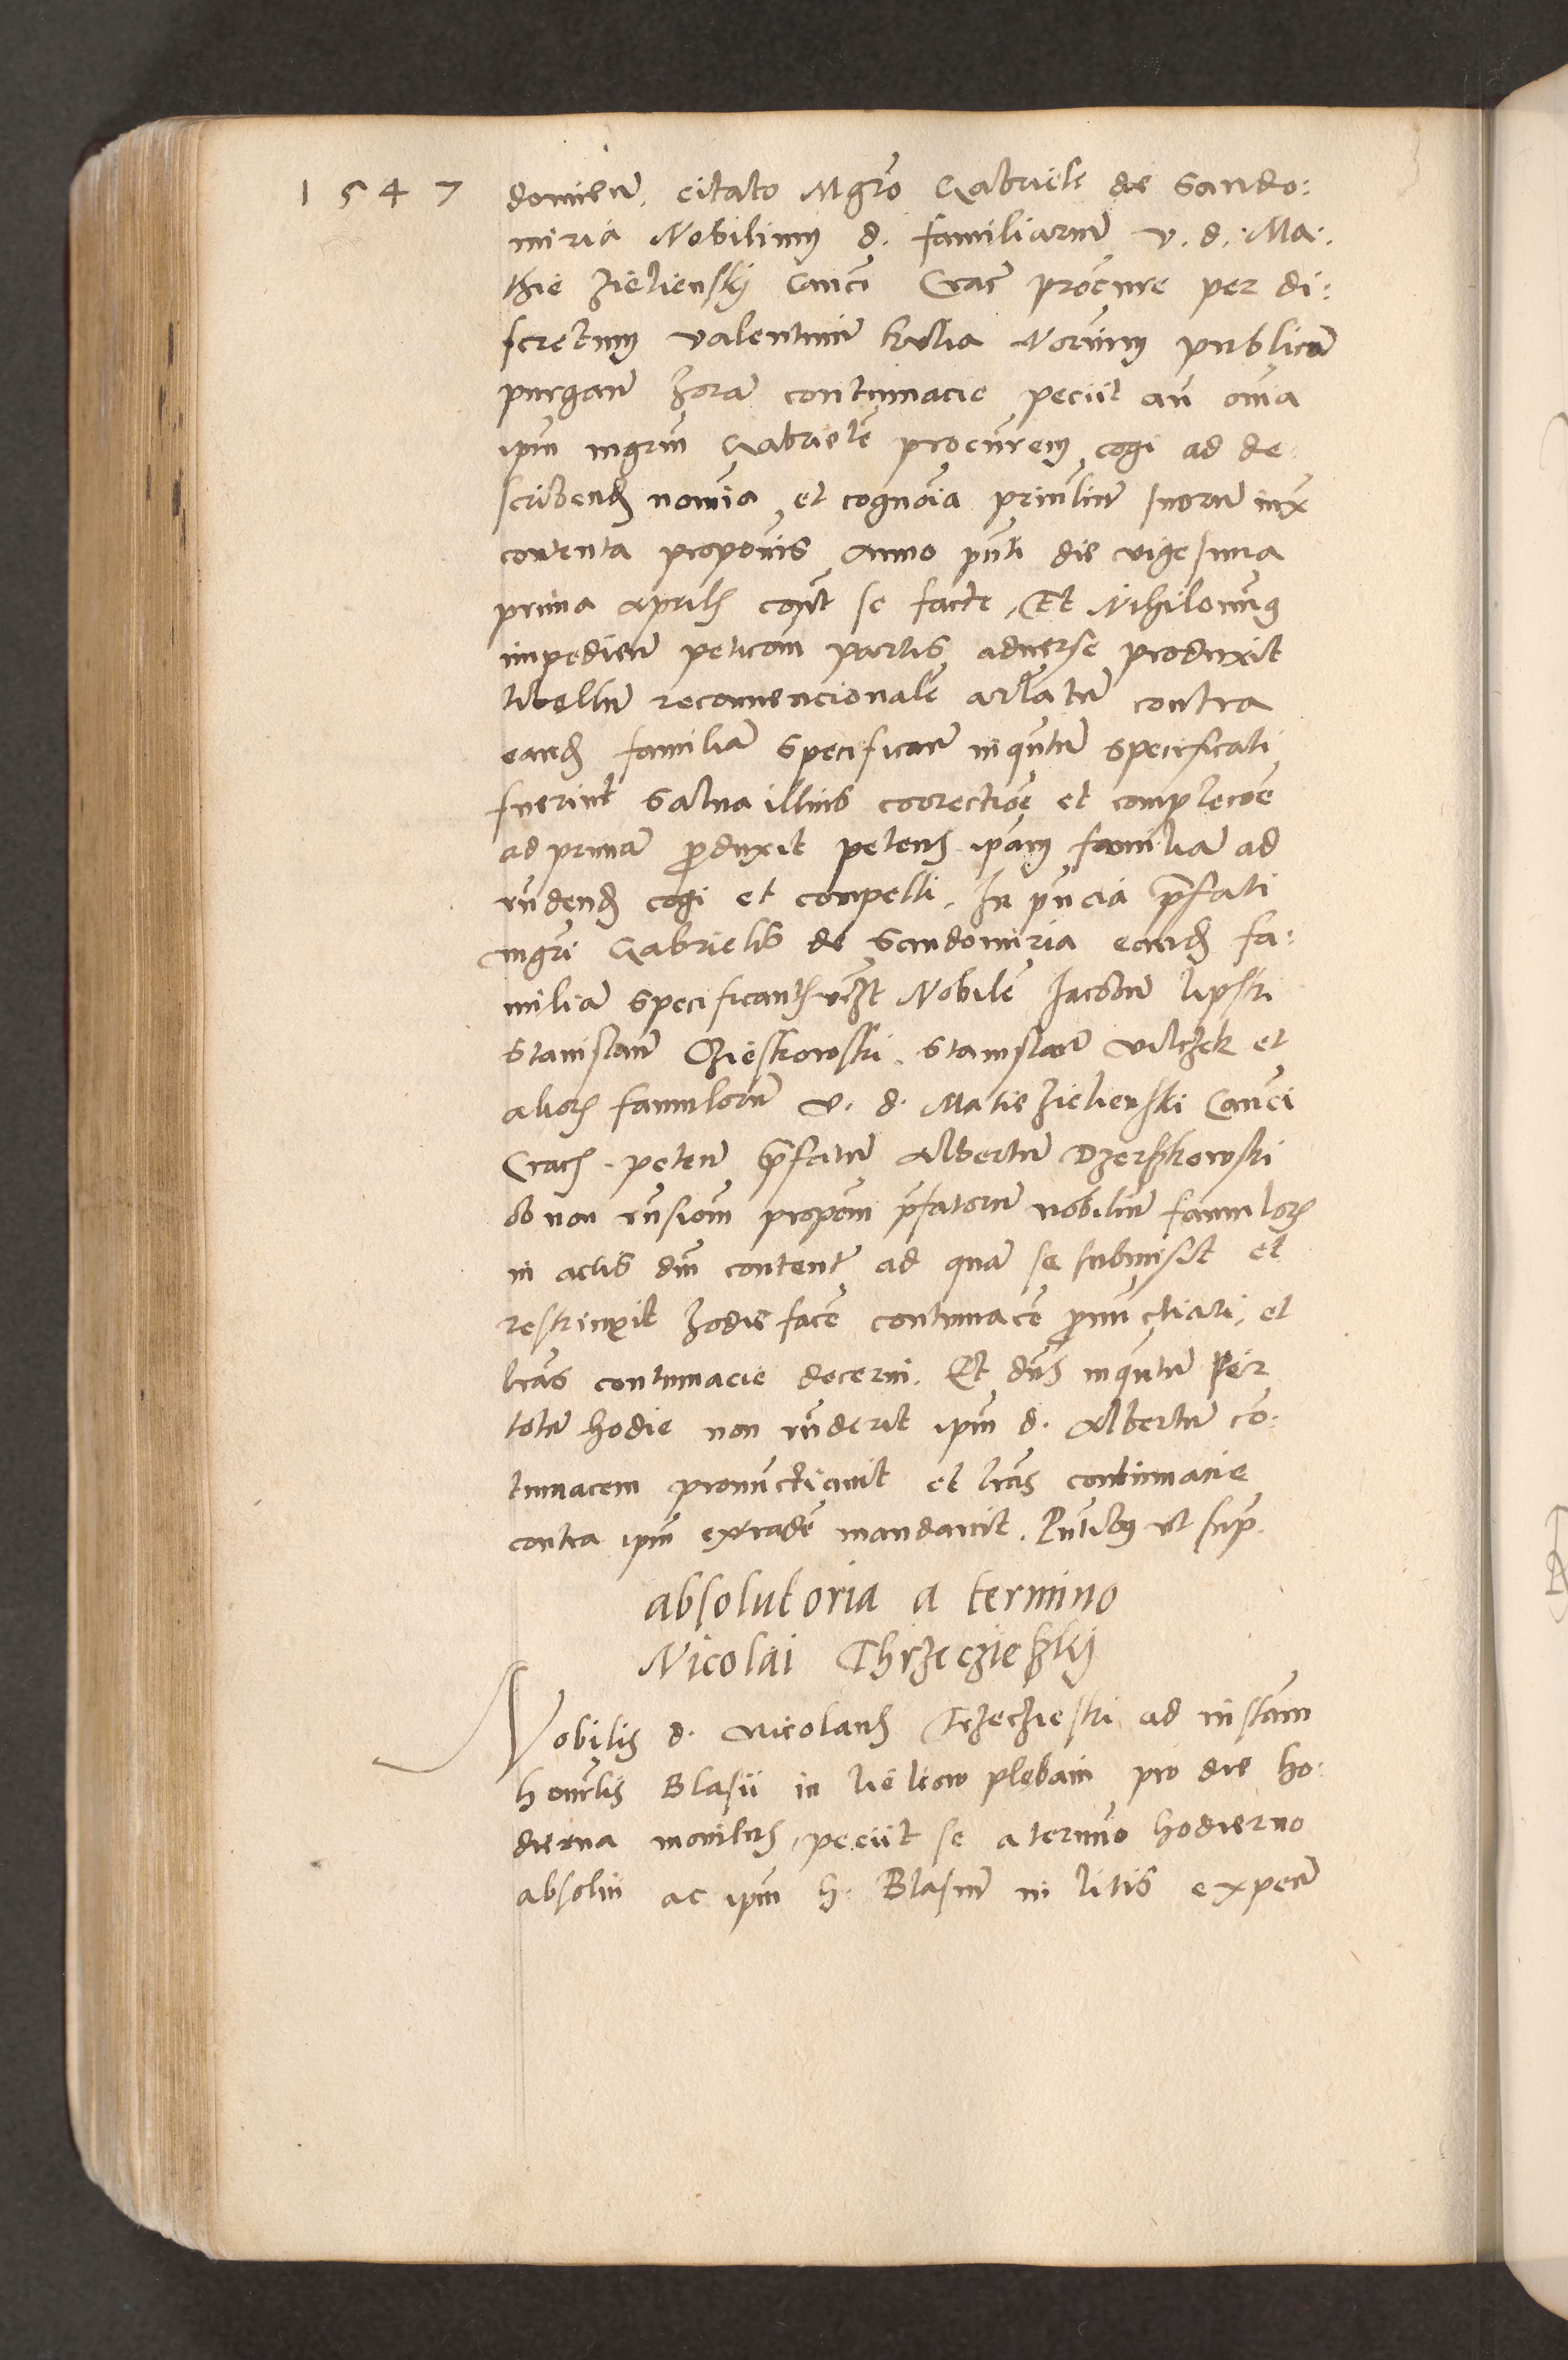 1547
domicū. citato Mgrō Gabriele de Sando:
miria Nobilium d. familiarum v. d. Ma:
thie Zielienskij Canci Crac procure per di:
scretum valentinū Notrium publicū
purganē horā contumacie peciit añ omīa
ipm mgrm Gabrielē procurem cogi ad de
scribend nomīa et cognoīa prinlium suorū iux
contenta proponīs anno pñti die vigesima
prima Aprilis se facte, Et Nihilomīg
impediendū peticom partis aduerse produxit
libellū reconuencionalē arlatū contra
eand familiā specificatū inqūtū specificati
fuerint salua illius correctiōe et complecōe
ad primā produxit petens ipam familiā ad
rñdend cogi et compelli. In pñcia pfati
mgri Gabrielis de Sandomiria eand fa:
miliā specificants vczt Nobilē Jacobū lipski
Stanislaū Czieskowski. Stanislaū vilczek et
alior famulorū v. d. Matie Zielienski Canci
Crac. petent pfatū Albertū Dzerszkowski
ob non rñsiom propom pfatorū nobiliū famulor
in actis dm content ad quā se submisit et
restrinxit hodie facē contumacē pnūctiari, et
lras contumacie decerni. Et dñs inqūtū per
totū hodie non rñderit ipm d. Albertū co:
tumacem pronūctiauit et lras contumacie
contra ipm extradē mandauit. Pñtibus vt sup.
absolutoria a termino
Nicolai Thrzeczieskij
Nobilis d. Nicolaus Trzeczieski ad instām
honrlis Blasii in lieliow plebani pro die ho:
dierna monitus, peciit se a termīo hodierno
absolui ac ipm h. Blasiū in litis expen